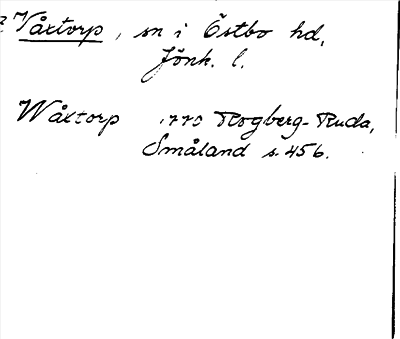 Våxtorp, sn i Östbo hd,
Jönk. l.
Wåxtorp 1770 Rogberg-Ruda,
Småland s. 456.